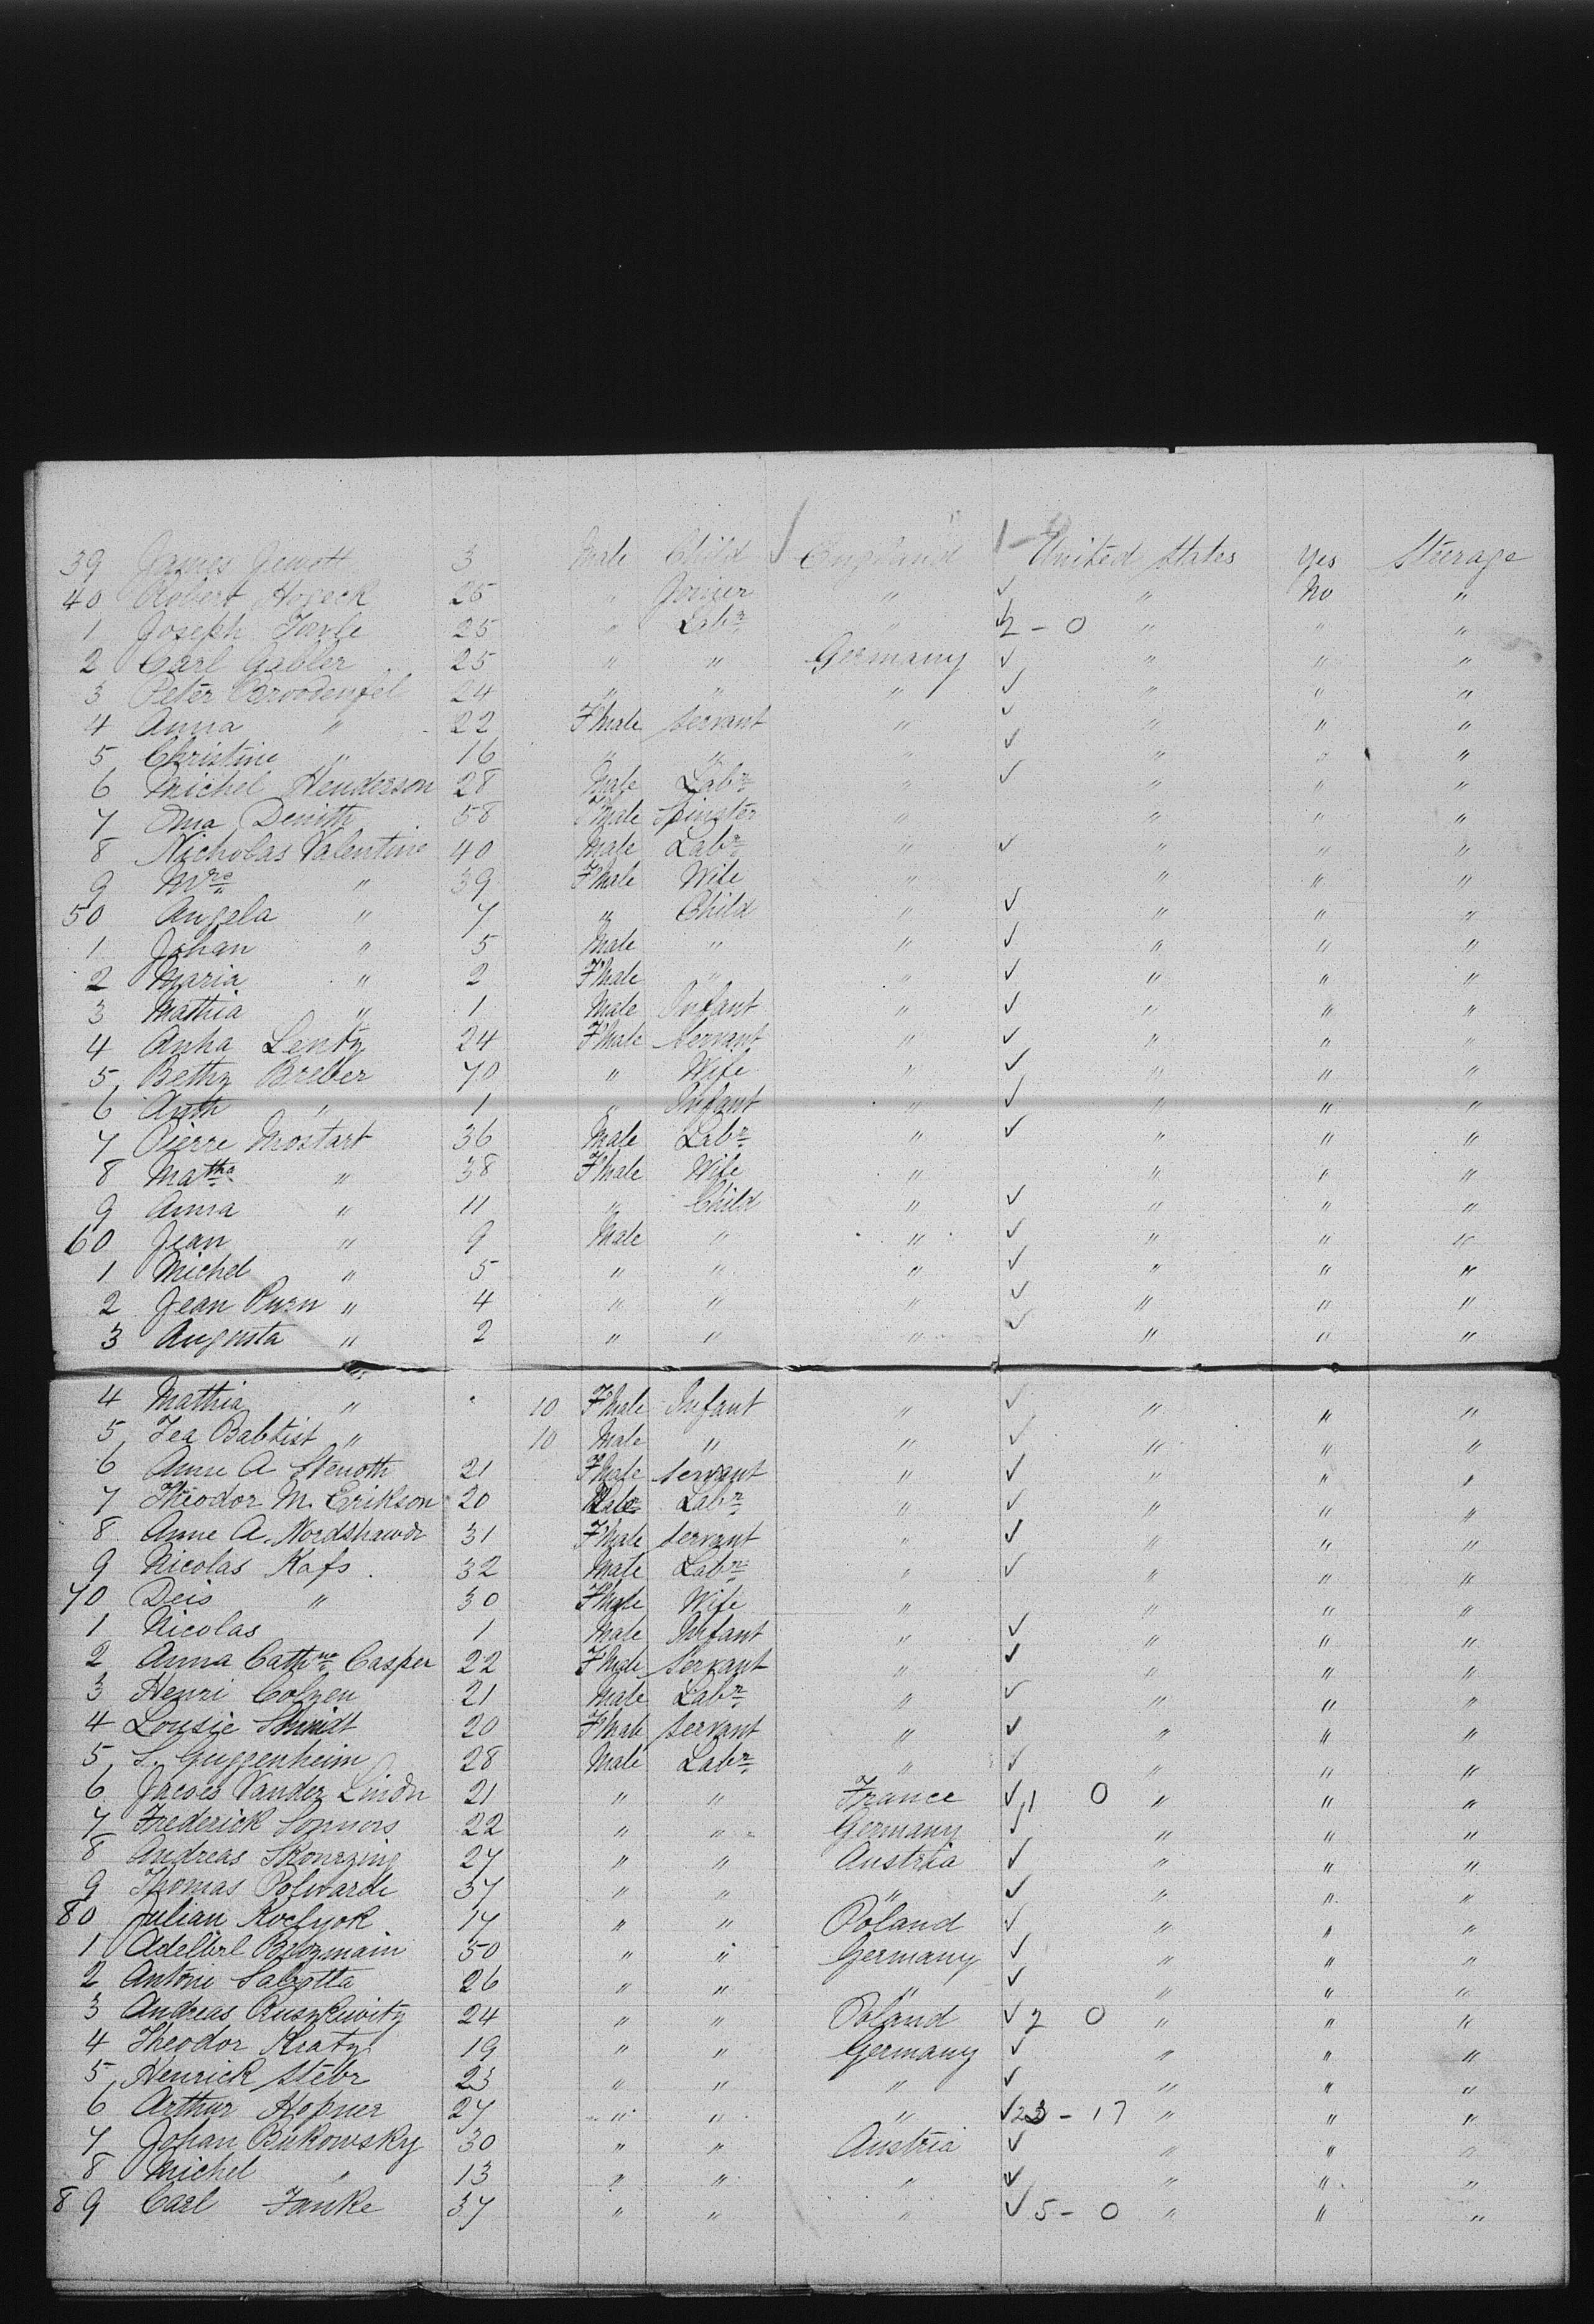 39 James Jewott 3 Male Child England 1 - United States Yes Steerage
40 Robert Hoseck 25 Joiner " " No "
1 Joseph 25 " Labr " 2 - 0 " " "
2 Carl Gabler 25 " " Germany " " "
3 Peter 24 " " " " " "
4 Anna " 22 Fmale Servant " " " "
5 Christine " 16 " " " " "
6 Michel Henderson 28 Male Labr " " " "
7 Ana Denith 58 Fmale Spinster " " " "
8 Nicholas Valentine 40 Male Labr " " " "
9 Mrs " 39 Fmale Wife " " " "
50 Angela " 7 " Child " " " "
1 Johan " 5 Male " " " " "
2 Maria " 2 Fmale " " " " "
3 Mathia " 1 Male Infant " " " "
4 Anna Lentz 24 Fmale Servant " " " "
5 Bethy Breber 70 " Wife " " " "
6 Anth " 1 " Infant " " " "
7 Pierre Mostart 36 Male Labr " " " "
8 Matha " 38 Fmale Wife " " " "
9 Anna " 11 " Child " " " "
60 Jean " 9 Male " " " " "
1 Michel " 5 " " " " " "
2 Jean Purn " 4 " " " " " "
3 Augusta " 2 " " " " " "
4 Mathia " 10 Fmale Infant " " " "
5 Jea Babtist " 10 Male " " " " "
6 Anne A Stenoth 21 Fmale Servant " " " "
7 Theodor M. Erikson 20 Male Labr " " " "
8 Anne A. 31 Fmale Servant " " " "
9 Nicolas Kafs 32 Male Labr " " " "
70 Deis " 30 Fmale Wife " " " "
1 Nicolas 1 Male Infant " " " "
2 Anna Cathne Casper 22 Fmale Servant " " " "
3 Henri Colzen 21 Male Labr " " " "
4 Lousie Shmidt 20 Fmale Servant " " " "
5 S. Guggenheim 28 Male Labr " " " "
6 Jacoes Vander Lindn 21 " " France 1 0 " " "
7 Frederick Sonnors 22 " " Germany " " "
8 Andreas 27 " " Austria " " "
9 Thomas Polwarde 37 " " " " " "
80 Julian 17 " " Poland " " "
1 50 " " Germany " " "
2 Antoni Sabotta 26 " " " " " "
3 Andreas 24 " " Poland 2 0 " " "
4 Theodor Kratz 19 " " Germany " " "
5 Henrick Stebr 23 " " " " " "
6 Arthur Hopner 27 " " " 23 - 17 " " "
7 Johan Bukowsky 30 " " Austria " " "
8 Michel " 13 " " " " " "
89 Carl Janke 37 " " " 5 - 0 " " "